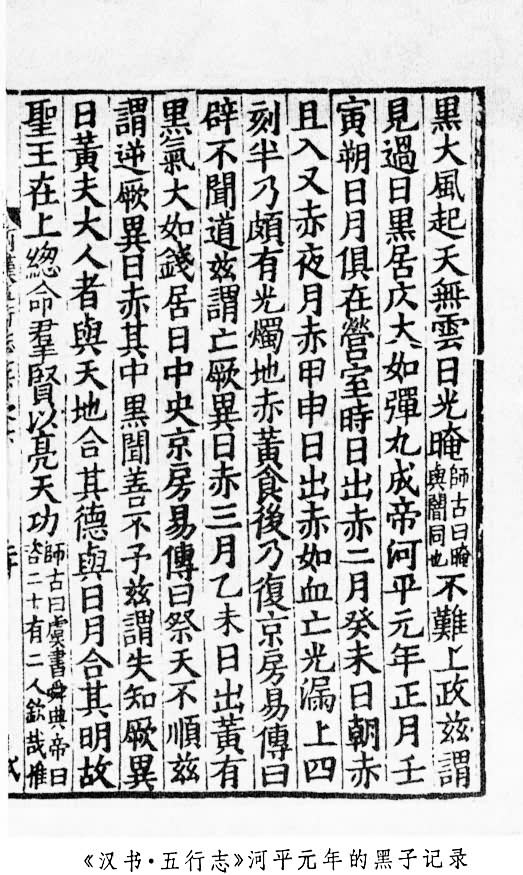 黒大風起天無雲日光晻師古曰晻與闇同也不難上政茲謂
見過日黒居仄大如彈丸成帝河平元年正月壬
寅朔日月俱在營室時日出赤二月癸未日朝赤
且入又赤夜月赤甲申日出赤如血亡光漏上四
刻半乃頗有光燭地赤黃食後乃復京房易傳曰
辟不聞道茲謂亡厥異日赤三月乙未日出黃有
黒氣大如錢居日中央京房易傳曰祭天不順茲
謂逆厥異日赤其中黒聞善不予茲謂失知厥異
日黃夫大人者與天地合其德與日月合其明故
聖王在上緫命羣賢以亮天功師古曰虞書舜典帝曰咨二十有二人欽哉惟
《汉书·五行志》河平元年的黑子记录